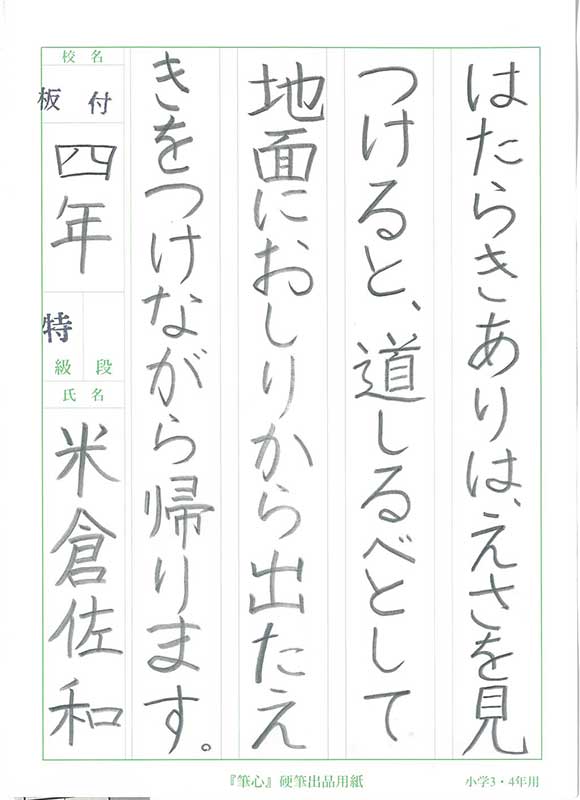 はたらきありは、えさを見
つけると、道しるべとして
地面におしりから出たえ
きをつけながら帰ります。
校名
板付
四年
特
級段
氏名
米倉佐和
『筆心』硬筆出品用紙
小学3・4年用